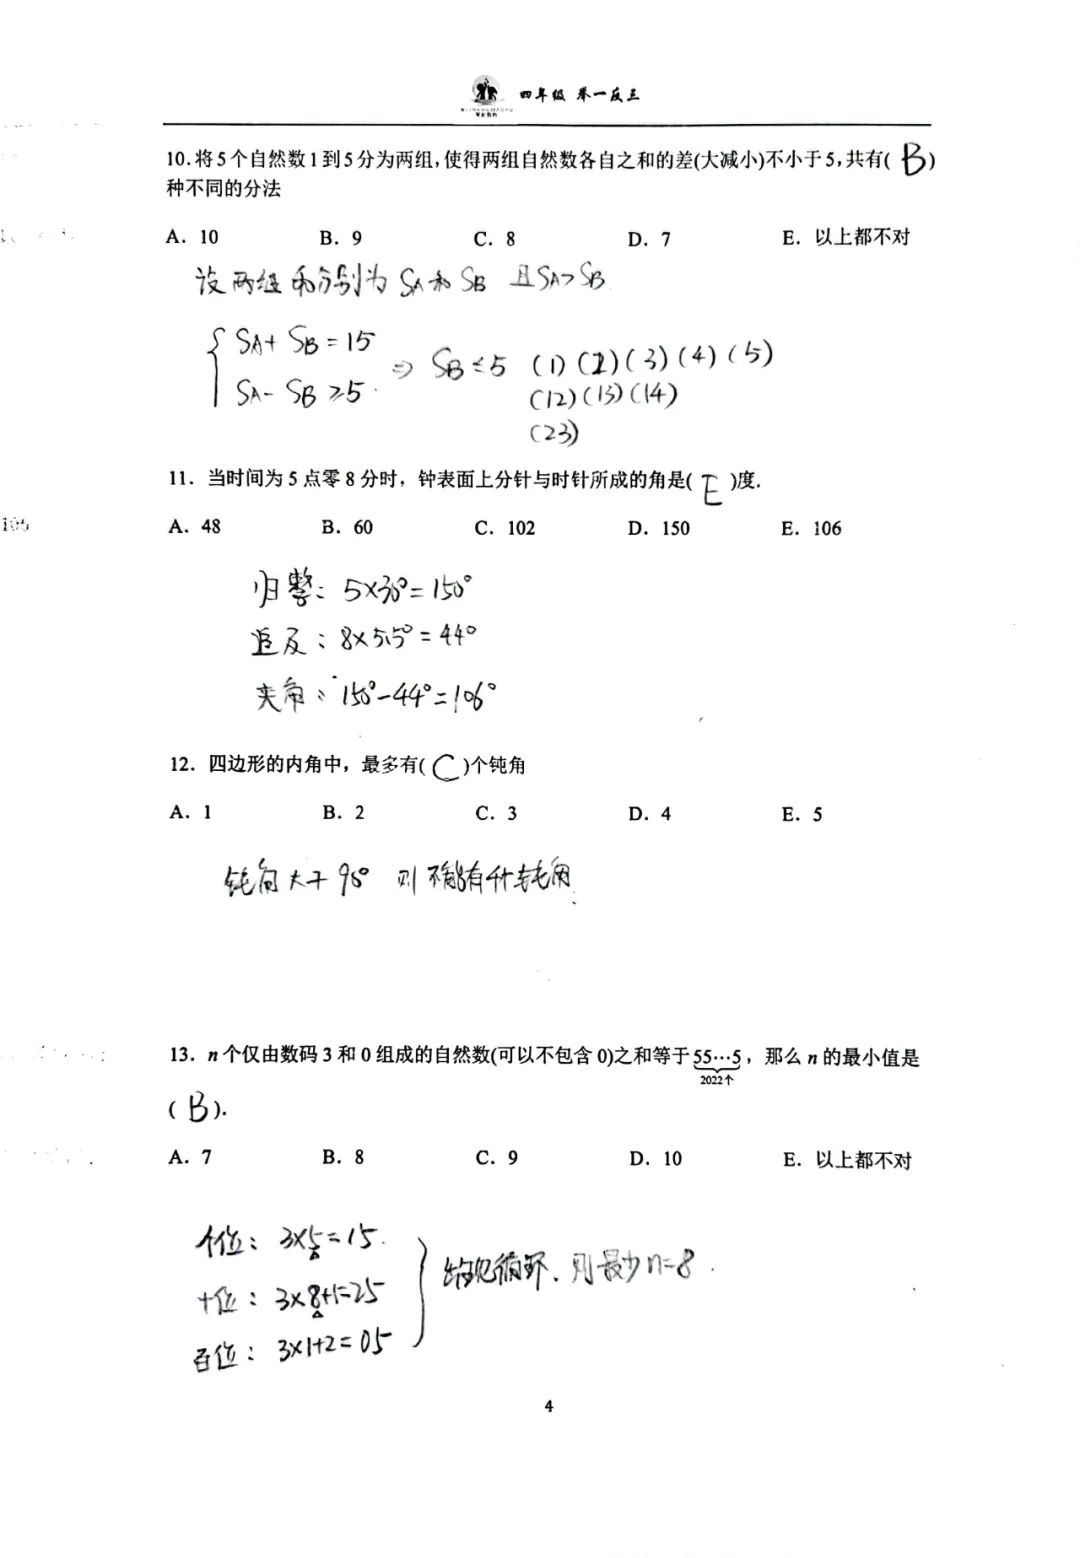 四年级 举一反三
10.将5个自然数1到5分为两组,使得两组自然数各自之和的差(大减小)不小于5,共有( B )
种不同的分法
A. 10 B. 9 C. 8 D. 7 E. 以上都不对
设两组和分别为 SA和SB 且SA>SB
SA+SB=15
SA-SB≥5
⇒ SB≤5 (1)(2)(3)(4)(5)
(12)(13)(14)
(23)
11. 当时间为5点零8分时，钟表面上分针与时针所成的角是( E )度.
A. 48 B. 60 C. 102 D. 150 E. 106
归整: 5×30°=150°
追及: 8×5.5°=44°
夹角: 150°-44°=106°
12. 四边形的内角中，最多有( C )个钝角
A. 1 B. 2 C. 3 D. 4 E. 5
钝角大于90° 则不能有4个钝角
13. n个仅由数码3和0组成的自然数(可以不包含0)之和等于55…5，那么n的最小值是
2022个
( B ).
A. 7 B. 8 C. 9 D. 10 E. 以上都不对
个位: 3×5=15.
十位: 3×8+1=25
百位: 3×1+2=05
循环. 则最少n=8.
4